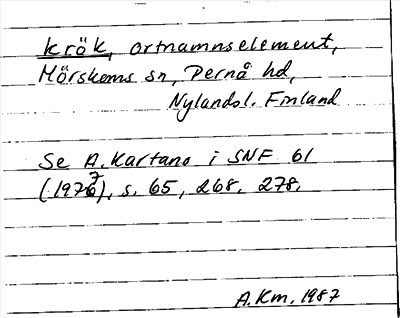 krök, ortnamnselement,
Mörskoms sn, Pernå hd,
Nylandsl. Finland
Se A. Kartano i SNF 61
(1977), s. 65, 268, 278.
A.Km. 1987